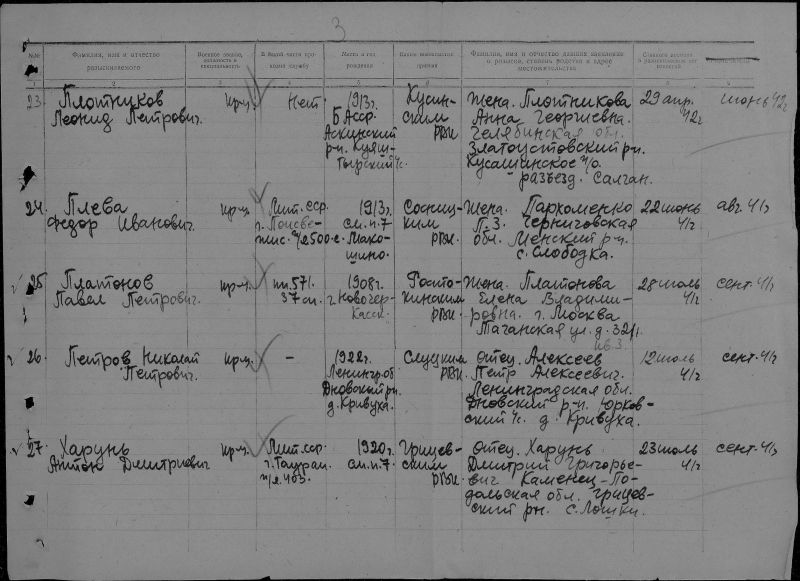 3
№№
Фамилия, имя и отчество разыскиваемого
Военное звание, должность и специальность
В какой части проходил службу
Место и год рождения
Каким военкоматом призван
Фамилия, имя и отчество давших заявление о розыске, степень родства и адрес местожительства
1 2 3 4 5 6 7
23. Плотников
Леонид Петрович.
кр-ц.
Нет
1913г.
БАсср.
Аскинский
р-н.
Кусин-
ским
РВК.
Жена. Плотникова
Анна Георгиевна.
Челябинская обл.
Златоустовский р-н.
Кусашинское п/о.
разъезд. Салган.
29 апр.
42г
июнь 42г
24. Плева
Федор Иванович.
кр-ц.
Лит. сср.
1913г.
см. п. 7
Мако-
шино.
Сосниц-
ким
РВК.
Жена. Пархоменко
П. З. Черниговская
обл. Менский р-н
с. Слободка.
22 июнь
41г
авг. 41г
25 Платонов
Павел Петрович.
кр-ц.
пп. 571.
37 сп.
1908г.
г. Новочер-
касск.
Росто-
кинским
РВК.
Жена. Платонова
Елена Владими-
ровна. г. Москва
Таганская ул. д. 32/1.
кв. 3.
28 июль
41г
сент. 41г
26. Петров Николай
Петрович.
кр-ц.
-
1922г.
Ленингр. об
Дновский рн.
д. Кривуха.
Слуцким
РВК.
Отец. Алексеев
Петр Алексеевич.
Ленинградская обл.
Дновский р-н. Юрков-
ский с/с. д. Кривуха.
12 июль
41г
сент. 41г
27. Харунь
Антон Дмитриевич
кр-ц.
Лит. сср.
г. Таураг.
п/я. 403.
1920г.
см. п. 7.
Грицев-
ским
РВК.
Отец. Харунь
Дмитрий Григорье-
вич Каменец-По-
дольская обл. Грицев-
ский рн. с. Лошки.
23 июль
41г
сент. 41г